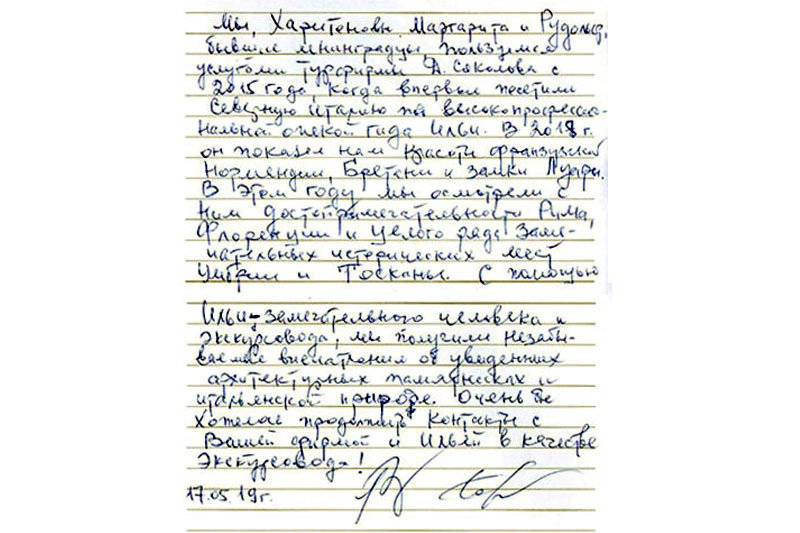 Мы, Харитоновы Маргарита и Рудольф,
бывшие ленинградцы, пользуемся
услугами турфирмы А. Соколова с
2015 года, когда впервые посетили
Северную Италию под высокопрофессио-
нальной опекой гида Ильи. В 2018 г.
он показал нам красоты французской
Нормандии, Бретани и замки Луары.
В этом году мы осмотрели с
ним достопримечательности Рима,
Флоренции и целого ряда заме-
чательных исторических мест
Умбрии и Тосканы. С помощью
Ильи-замечательного человека и
экскурсовода, мы получили незабы-
ваемые впечатления от увиденных
архитектурных памятниках и
итальянской природе. Очень бы
хотелось продолжить контакты с
Вашей фирмой и Ильёй в качестве
экскурсовода!
17.05.19г.